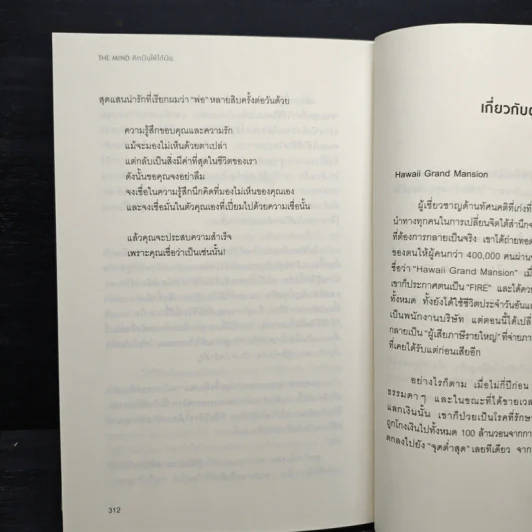 THE MIND คิดเป็นให้ได้เป็น
สุดแสนน่ารักที่เรียกผมว่า “พ่อ” หลายสิบครั้งต่อวันด้วย
ความรู้สึกขอบคุณและความรัก
แม้จะมองไม่เห็นด้วยตาเปล่า
แต่กลับเป็นสิ่งมีค่าที่สุดในชีวิตของเรา
ดังนั้นขอคุณจงอย่าลืม
จงเชื่อในความรู้สึกนึกคิดที่มองไม่เห็นของคุณเอง
และจงเชื่อมั่นในตัวคุณเองที่เปี่ยมไปด้วยความเชื่อนั้น
แล้วคุณจะประสบความสำเร็จ
เพราะคุณเชื่อว่าเป็นเช่นนั้น!
312
เกี่ยวกับ
Hawaii Grand Mansion
ผู้เชี่ยวชาญด้านทัศนคติที่เก่งที่
นำทางทุกคนในการเปลี่ยนจิตใต้สำนึก
ที่ต้องการกลายเป็นจริง เขาได้ถ่ายทอด
ของตนให้ผู้คนกว่า 400,000 คนผ่าน
ชื่อว่า “Hawaii Grand Mansion”
เขาก็ประกาศตนเป็น “FIRE” และได้
ทั้งหมด ทั้งยังได้ใช้ชีวิตประจำวันอัน
เป็นพนักงานบริษัท แต่ตอนนี้ได้เปลี่
กลายเป็น “ผู้เสียภาษีรายใหญ่” ที่จ่ายภา
ที่เคยได้รับแต่ก่อนเสียอีก
อย่างไรก็ตาม เมื่อไม่กี่ปีก่อน
ธรรมดาๆ และในขณะที่ได้ขายเวล
แลกเงินนั้น เขาก็ป่วยเป็นโรคที่รักษา
ถูกโกงเงินไปทั้งหมด 100 ล้านวอนจากกา
ตกลงไปยัง “จุดต่ำสุด” เลยทีเดียว จาก